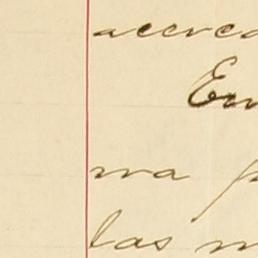 acerca
En
na p
las m